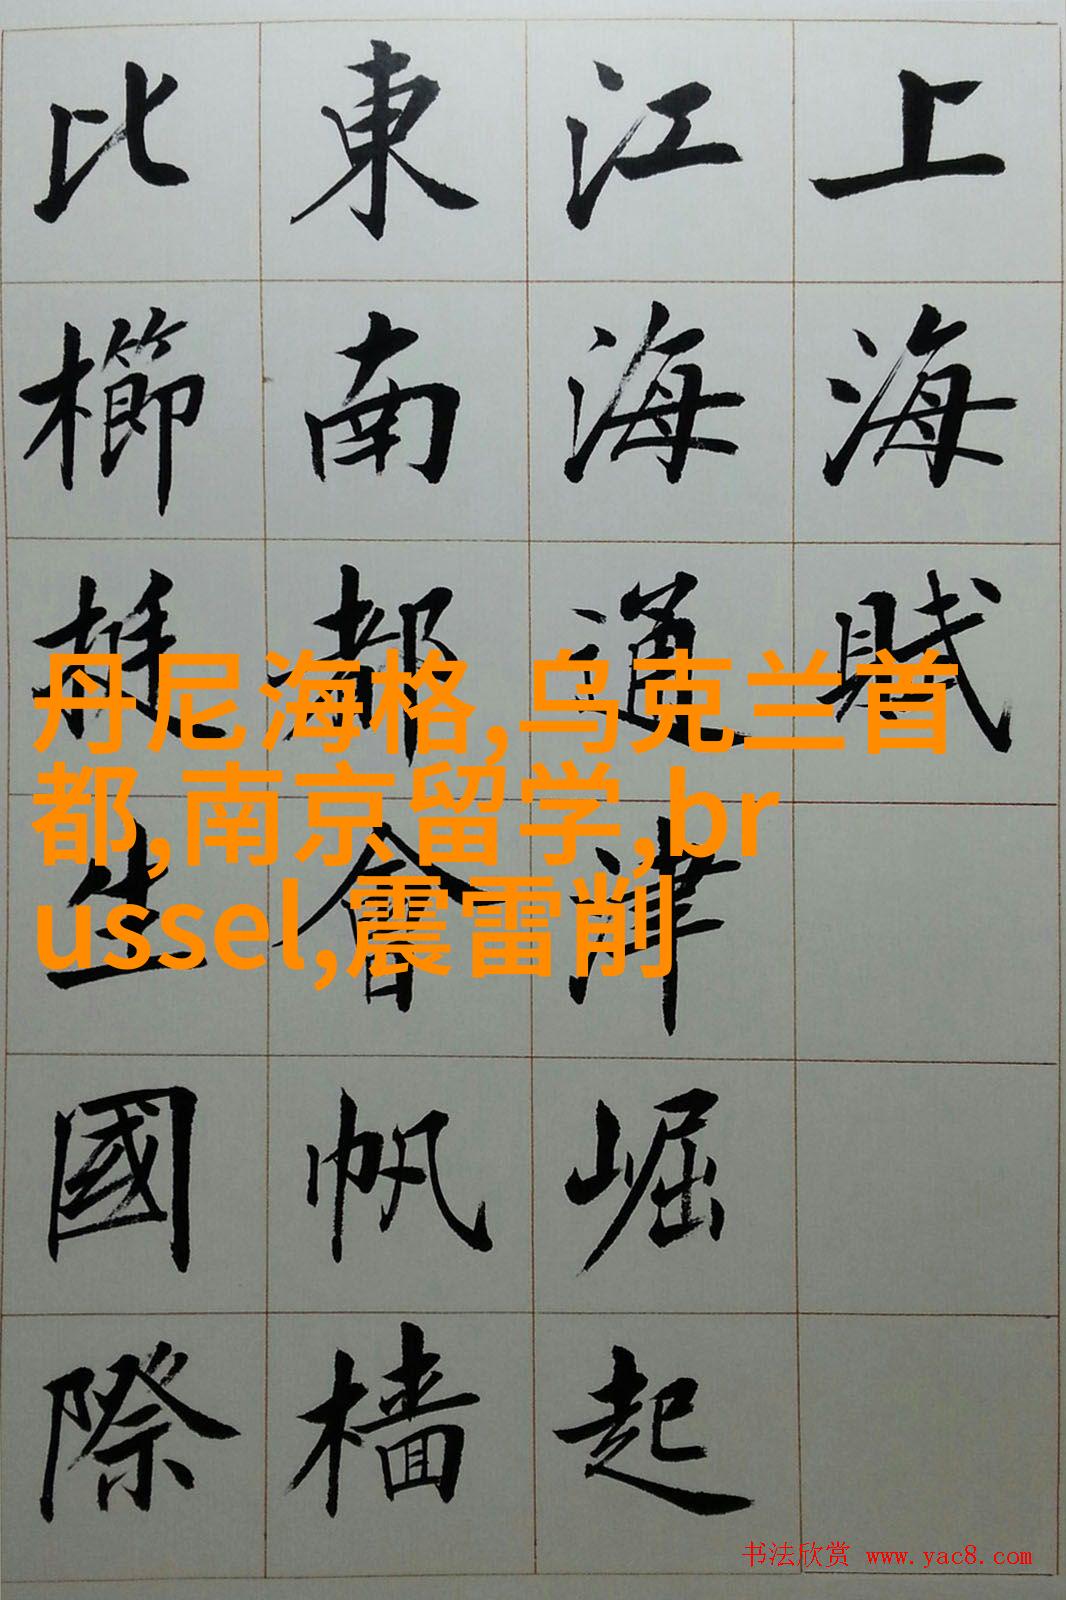 上海賦
江海通津崛起
東南都會帆檣
比櫛挺生國際
丹尼海格,乌克兰首
都,南京留学,br
ussel,震雷削
书法欣赏 www.yac8.com